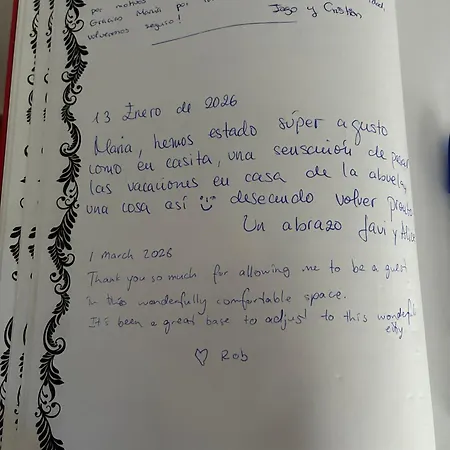 por motivos
Gracias María por
volveremos seguro!
Jago y Cristian
13 Enero de 2026
María, hemos estado súper a gusto
como en casita, una sensación de pasar
las vacaciones en casa de la abuela,
una cosa así :) deseando volver pronto
Un abrazo Javi y
1 March 2026
Thank you so much for allowing me to be a guest
in this wonderfully comfortable space.
It's been a great base to adjust to this wonderful
city
♡ Rob